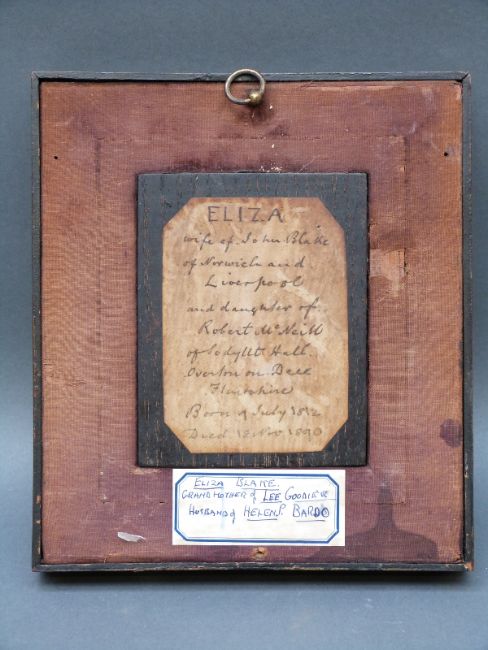 ELIZA
wife of John Blake
of Norwich and
Liverpool
and daughter of
Robert McNeill
of Hall
Overton on Dee
Flintshire
Born July 1812
Died Nov 1890
ELIZA BLAKE.
GRANDMOTHER of LEE
HUSBAND of HELEN BARDO